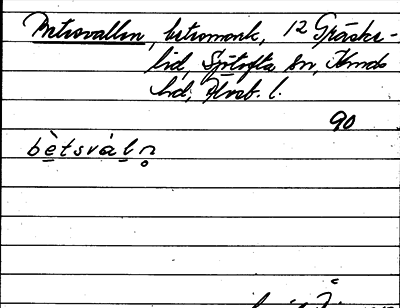 Betsvallen, betesmark, 12 Gräshe-
lid, Sjötofta sn, Kinds
hd, Älvsb. l.
90
bètsvàln̥